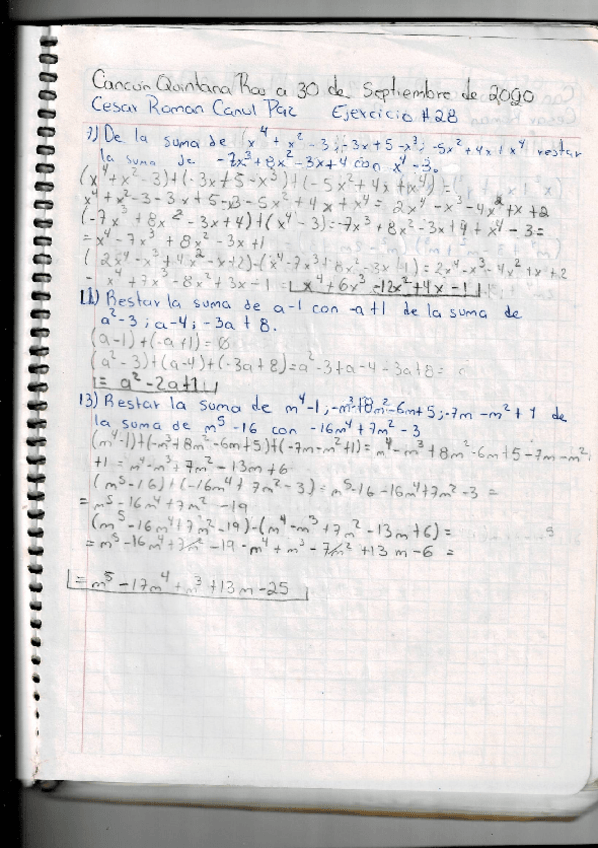 Cancún Quintana Roo a 30 de Septiembre de 2020
Cesar Roman Canul Paz Ejercicio #28
7) De la suma de (x⁴ + x² - 3; -3x + 5 - x³; -5x² + 4x + x⁴ restar
la suma de -7x³ + 8x² - 3x + 4 con x⁴ - 3.
(x⁴ + x² - 3) + (-3x + 5 - x³) + (-5x² + 4x + x⁴) =
x⁴ + x² - 3 - 3x + 5 - x³ - 5x² + 4x + x⁴ = 2x⁴ - x³ - 4x² + x + 2
(-7x³ + 8x² - 3x + 4) + (x⁴ - 3) = -7x³ + 8x² - 3x + 4 + x⁴ - 3 =
= x⁴ - 7x³ + 8x² - 3x + 1
(2x⁴ - x³ + 4x² - x + 2) - (x⁴ - 7x³ + 8x² - 3x + 1) = 2x⁴ - x³ - 4x² + x + 2
- x⁴ + 7x³ - 8x² + 3x - 1 = x⁴ + 6x³ - 12x² + 4x - 1
11) Restar la suma de a - 1 con -a + 1 de la suma de
a² - 3; a - 4; -3a + 8.
(a - 1) + (-a + 1) = 0
(a² - 3) + (a - 4) + (-3a + 8) = a² - 3 + a - 4 - 3a + 8 =
= a² - 2a + 1
13) Restar la suma de m⁴ - 1; -m³ + 8m² - 6m + 5; -7m - m² + 1 de
la suma de m⁵ - 16 con -16m⁴ + 7m² - 3
(m⁴ - 1) + (-m³ + 8m² - 6m + 5) + (-7m - m² + 1) = m⁴ - m³ + 8m² - 6m + 5 - 7m - m²
+1 = m⁴ - m³ + 7m² - 13m + 6
(m⁵ - 16) + (-16m⁴ + 7m² - 3) = m⁵ - 16 - 16m⁴ + 7m² - 3 =
= m⁵ - 16m⁴ + 7m² - 19
(m⁵ - 16m⁴ + 7m² - 19) - (m⁴ - m³ + 7m² - 13m + 6) =
= m⁵ - 16m⁴ + 7m² - 19 - m⁴ + m³ - 7m² + 13m - 6 =
= m⁵ - 17m⁴ + m³ + 13m - 25